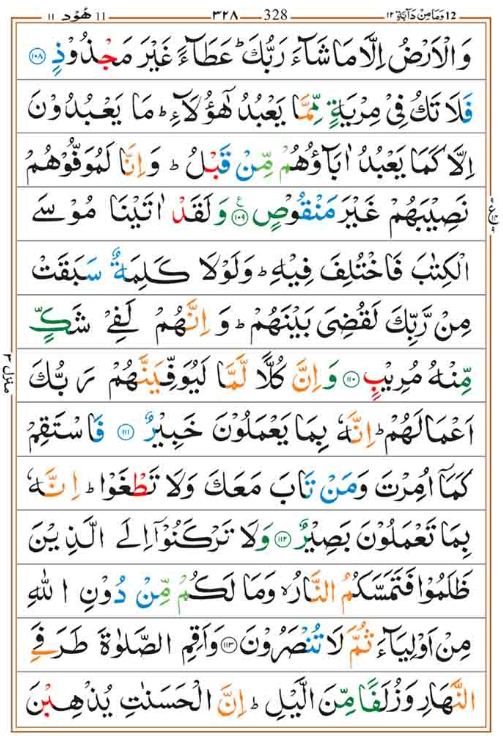 12 وَمَا مِنْ دَآبَّة ١٢ 328 ٣٢٨ ١١ هُوْد ١١
وَالْاَرْضُ اِلَّا مَا شَآءَ رَبُّكَ ؕ عَطَآءً غَيْرَ مَجْذُوْذٍ ﴿۱۰۸﴾
فَلَا تَكُ فِيْ مِرْيَةٍ مِّمَّا يَعْبُدُ هٰٓؤُلَآءِ ؕ مَا يَعْبُدُوْنَ
اِلَّا كَمَا يَعْبُدُ اٰبَآؤُهُمْ مِّنْ قَبْلُ ؕ وَاِنَّا لَمُوَفُّوْهُمْ
نَصِيْبَهُمْ غَيْرَ مَنْقُوْصٍ ﴿۱۰۹﴾ ع وَلَقَدْ اٰتَيْنَا مُوْسَى
الْكِتٰبَ فَاخْتُلِفَ فِيْهِ ؕ وَلَوْلَا كَلِمَةٌ سَبَقَتْ
مِنْ رَّبِّكَ لَقُضِيَ بَيْنَهُمْ ؕ وَاِنَّهُمْ لَفِيْ شَكٍّ
مِّنْهُ مُرِيْبٍ ﴿۱۱۰﴾ وَاِنَّ كُلًّا لَّمَّا لَيُوَفِّيَنَّهُمْ رَبُّكَ
اَعْمَالَهُمْ ؕ اِنَّهٗ بِمَا يَعْمَلُوْنَ خَبِيْرٌ ﴿۱۱۱﴾ فَاسْتَقِمْ
كَمَآ اُمِرْتَ وَمَنْ تَابَ مَعَكَ وَلَا تَطْغَوْا ؕ اِنَّهٗ
بِمَا تَعْمَلُوْنَ بَصِيْرٌ ﴿۱۱۲﴾ وَلَا تَرْكَنُوْٓا اِلَى الَّذِيْنَ
ظَلَمُوْا فَتَمَسَّكُمُ النَّارُ ۙ وَمَا لَكُمْ مِّنْ دُوْنِ اللّٰهِ
مِنْ اَوْلِيَآءَ ثُمَّ لَا تُنْصَرُوْنَ ﴿۱۱۳﴾ وَاَقِمِ الصَّلٰوةَ طَرَفَيِ
النَّهَارِ وَزُلَفًا مِّنَ الَّيْلِ ؕ اِنَّ الْحَسَنٰتِ يُذْهِبْنَ
منزل ٣